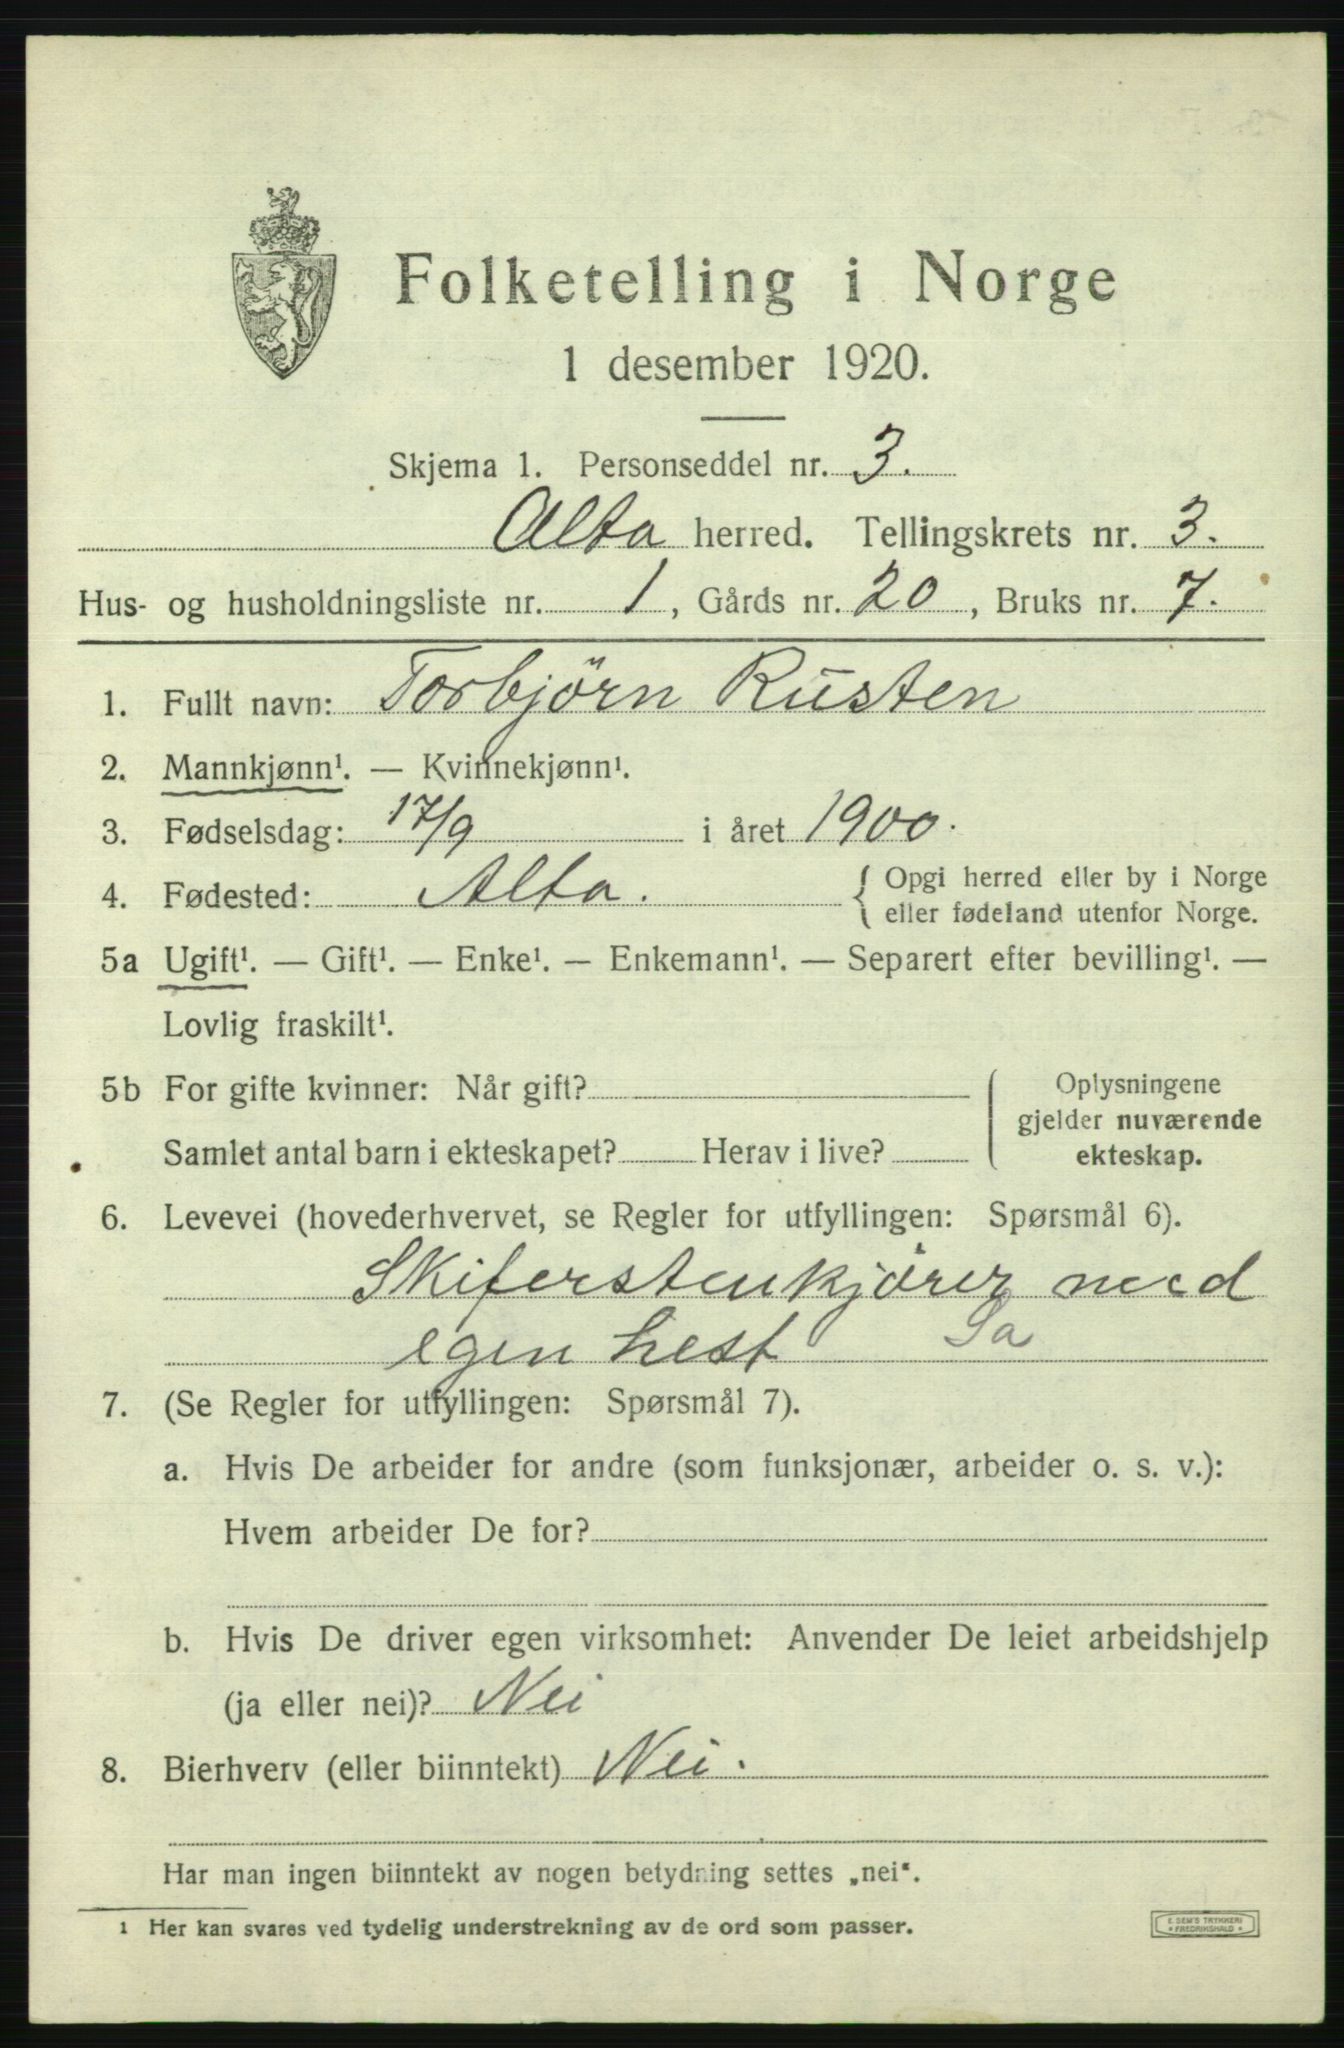 Folketelling i Norge
1 desember 1920.
Skjema 1. Personseddel nr. 3.
Alta herred. Tellingskrets nr. 3.
Hus- og husholdningsliste nr. 1, Gårds nr. 20, Bruks nr. 7.
1. Fullt navn: Torbjörn Rusten
2. Mannkjønn¹. — Kvinnekjønn¹.
3. Fødselsdag: 17/9 i året 1900.
4. Fødested: Alta. { Opgi herred eller by i Norge
eller fødeland utenfor Norge.
5a Ugift¹. — Gift¹. — Enke¹. — Enkemann¹. — Separert efter bevilling¹. —
Lovlig fraskilt¹.
5b For gifte kvinner: Når gift?
Samlet antal barn i ekteskapet? Herav i live?
Oplysningene
gjelder nuværende
ekteskap.
6. Levevei (hovederhvervet, se Regler for utfyllingen: Spørsmål 6).
Skiferstenkjörer med
egen hest Sa
7. (Se Regler for utfyllingen: Spørsmål 7).
a. Hvis De arbeider for andre (som funksjonær, arbeider o. s. v.):
Hvem arbeider De for?
b. Hvis De driver egen virksomhet: Anvender De leiet arbeidshjelp
(ja eller nei)? Nei
8. Bierhverv (eller biinntekt) Nei.
Har man ingen biinntekt av nogen betydning settes „nei“.
1 Her kan svares ved tydelig understrekning av de ord som passer.
E. SEM'S TRYKKERI
* FREDRIKSHALD *